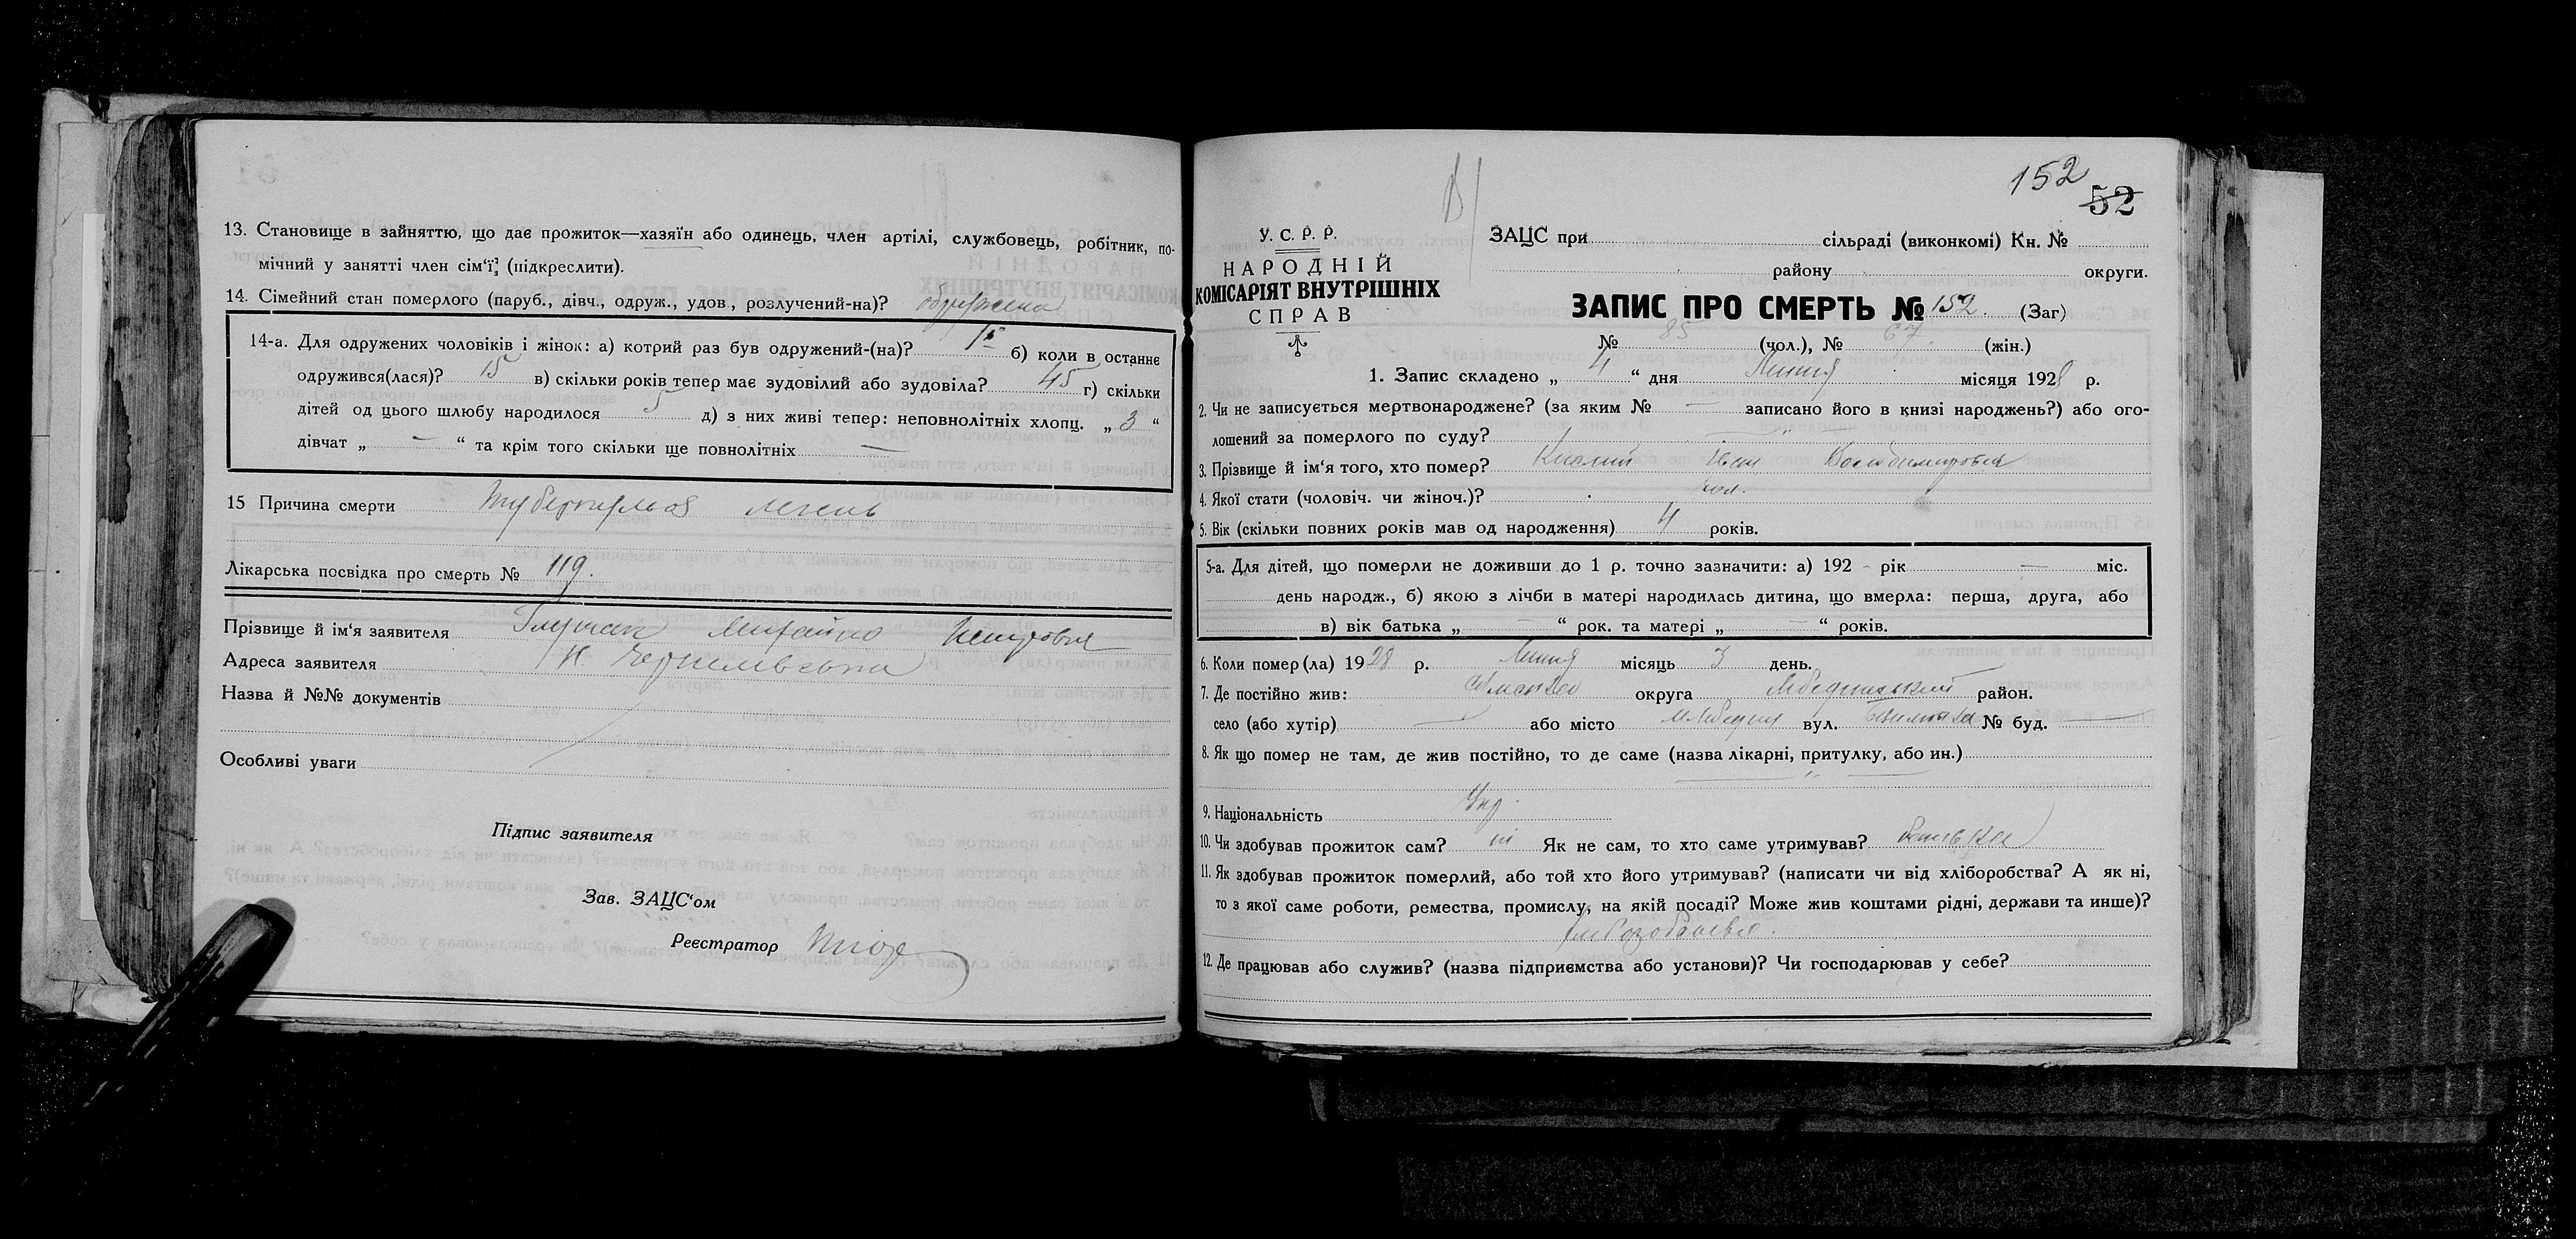 13. Становище в зайняттю, що дає прожиток—хазяїн або одинець, член артілі, службовець, робітник, по-
мічний у занятті член сім'ї; (підкреслити).
14. Сімейний стан померлого (паруб., дівч., одруж., удов., розлучений-на)? одружена
14-а. Для одружених чоловіків і жінок: а) котрий раз був одружений-(на)? 1й б) коли в останнє
одружився(лася)? 15 в) скільки років тепер має зудовілий або зудовіла? 45 г) скільки
дітей од цього шлюбу народилося 5 д) з них живі тепер: неповнолітніх хлопц. „ 3 “
дівчат „ — “ та крім того скільки ще повнолітніх —
15 Причина смерти туберкульоз легень
Лікарська посвідка про смерть № 119.
Прізвище й ім'я заявителя Михайло Петрович
Адреса заявителя
Назва й №№ документів
Особливі уваги
Підпис заявителя
Зав. ЗАЦС'ом
Реєстратор
152
52
У. С. Р. Р.
НАРОДНІЙ
КОМІСАРІЯТ ВНУТРІШНІХ
СПРАВ
ЗАЦС при сільраді (виконкомі) Кн. №
району округи.
ЗАПИС ПРО СМЕРТЬ № 152. (Заг)
№ 85 (чол.), № 67. (жін.)
1. Запис складено „ 4 “ дня Липня місяця 1928 р.
2. Чи не записується мертвонароджене? (за яким № — записано його в книзі народжень?) або ого-
лошений за померлого по суду? — „ —
3. Прізвище й ім'я того, хто помер? Кислий Іван Володимирович
4. Якої стати (чоловіч. чи жіноч.)? чол.
5. Вік (скільки повних років мав од народження) 4 років.
5-а. Для дітей, що померли не доживши до 1 р. точно зазначити: а) 192 - рік — міс.
день народж., б) якою з лічби в матері народилась дитина, що вмерла: перша, друга, або
в) вік батька „ — “ рок. та матері „ — “ років.
6. Коли помер(ла) 1928 р. Липня місяць 3 день.
7. Де постійно жив: округа район.
село (або хутір) — або місто вул. № буд. —
8. Як що помер не там, де жив постійно, то де саме (назва лікарні, притулку, або ин.)
— „ —
9. Національність Укр.
10. Чи здобував прожиток сам? ні Як не сам, то хто саме утримував? батько
11. Як здобував прожиток померлий, або той хто його утримував? (написати чи від хліборобства? А як ні,
то з якої саме роботи, ремества, промислу, на якій посаді? Може жив коштами рідні, держави та инше)?
12. Де працював або служив? (назва підприємства або установи)? Чи господарював у себе?